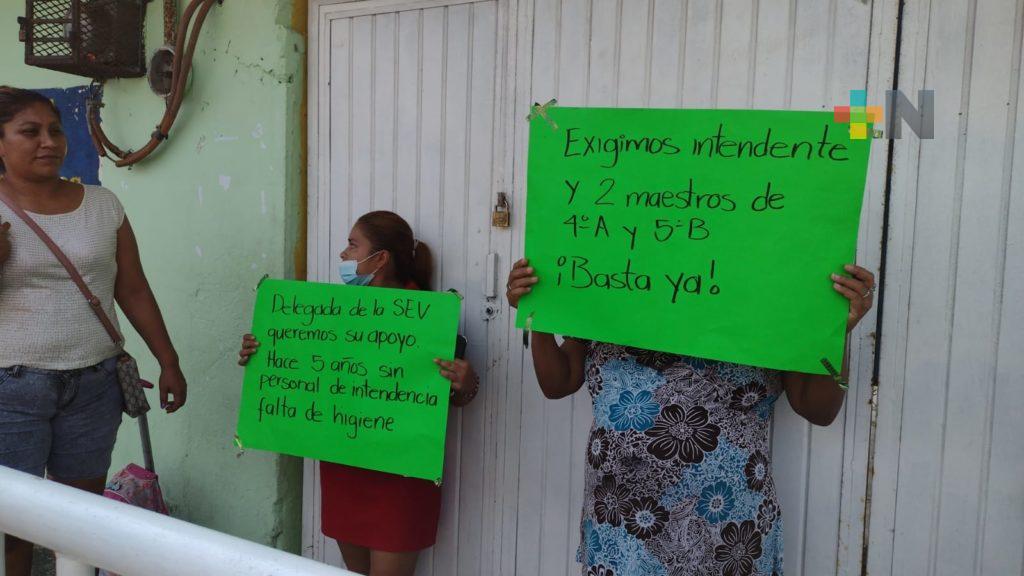 Delegada de la SEV
queremos su apoyo.
Hace 5 años sin
personal de intendencia
falta de higiene
Exigimos intendente
y 2 maestros de
4º A y 5º B
¡Basta ya!
N